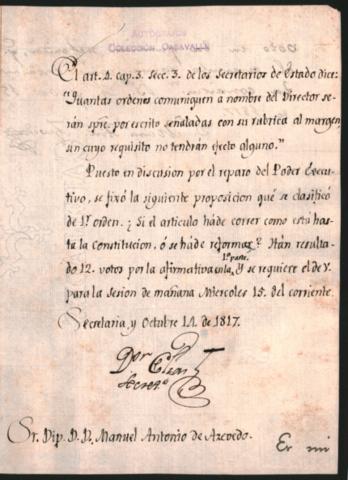 AUTÓGRAFOS
COLECCIÓN CASAVALLE
El art. 4. cap. 3. Secc. 3. de los Secretarios de Estado dice:
"Quantas ordenes comuniquen a nombre del Director se-
rán spre. por escrito señaladas con su rubrica al margen,
sin cuyo requisito no tendrán efecto alguno."
Puesto en discusion por el reparo del Poder Execu-
tivo, se fixó la siguiente proposicion qe. se clasificó
de 1r. orden. ¿Si el articulo háde correr como está has-
ta la Constitucion, ó se háde reformar? Hán resulta-
do 12. votos por la afirmativa en la 1a. parte. Y se requiere el de V.
para la Sesion de mañana Miercoles 15. del corriente.
Secretaria, y Octubre 14. de 1817.
Dor
Elias
Secreto
Sr. Dip. D. D. Manuel Antonio de Azevedo.
Es mi